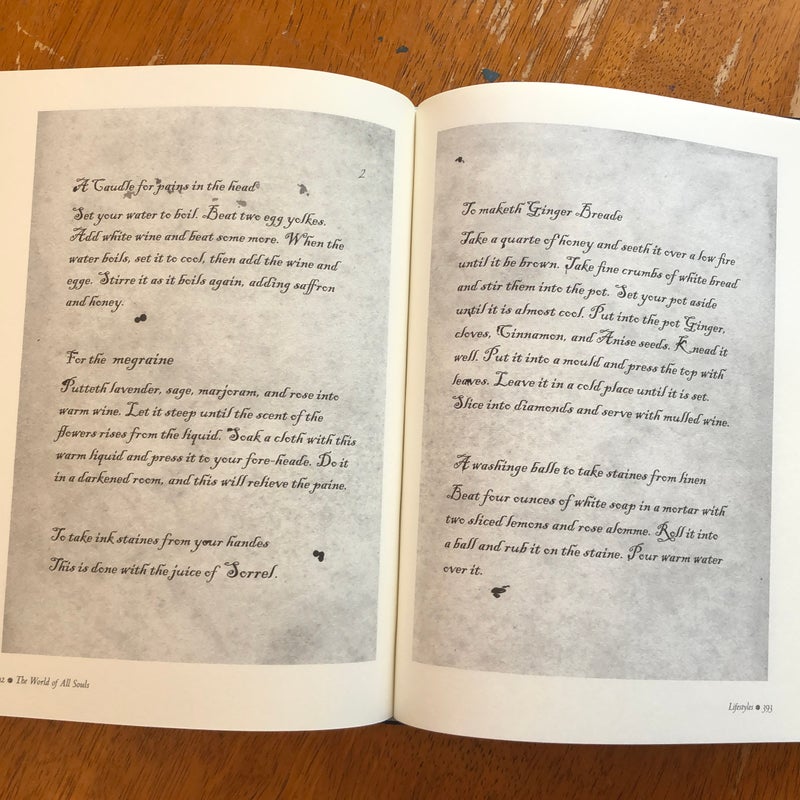 2
A Caudle for pains in the head
Set your water to boil. Beat two egg yolkes.
Add white wine and beat some more. When the
water boils, set it to cool, then add the wine and
egge. Stirre it as it boils again, adding saffron
and honey.
For the megraine
Putteth lavender, sage, marjoram, and rose into
warm wine. Let it steep until the scent of the
flowers rises from the liquid. Soak a cloth with this
warm liquid and press it to your fore-heade. Do it
in a darkened room, and this will relieve the paine.
To take ink staines from your handes
This is done with the juice of Sorrel.
2 ● The World of All Souls
To maketh Ginger Breade
Take a quarte of honey and seeth it over a low fire
until it be brown. Take fine crumbs of white bread
and stir them into the pot. Set your pot aside
until it is almost cool. Put into the pot Ginger,
cloves, Cinnamon, and Anise seeds. Knead it
well. Put it into a mould and press the top with
leaves. Leave it in a cold place until it is set.
Slice into diamonds and serve with mulled wine.
A washinge balle to take staines from linen
Beat four ounces of white soap in a mortar with
two sliced lemons and rose alomme. Roll it into
a ball and rub it on the staine. Pour warm water
over it.
Lifestyles ● 393